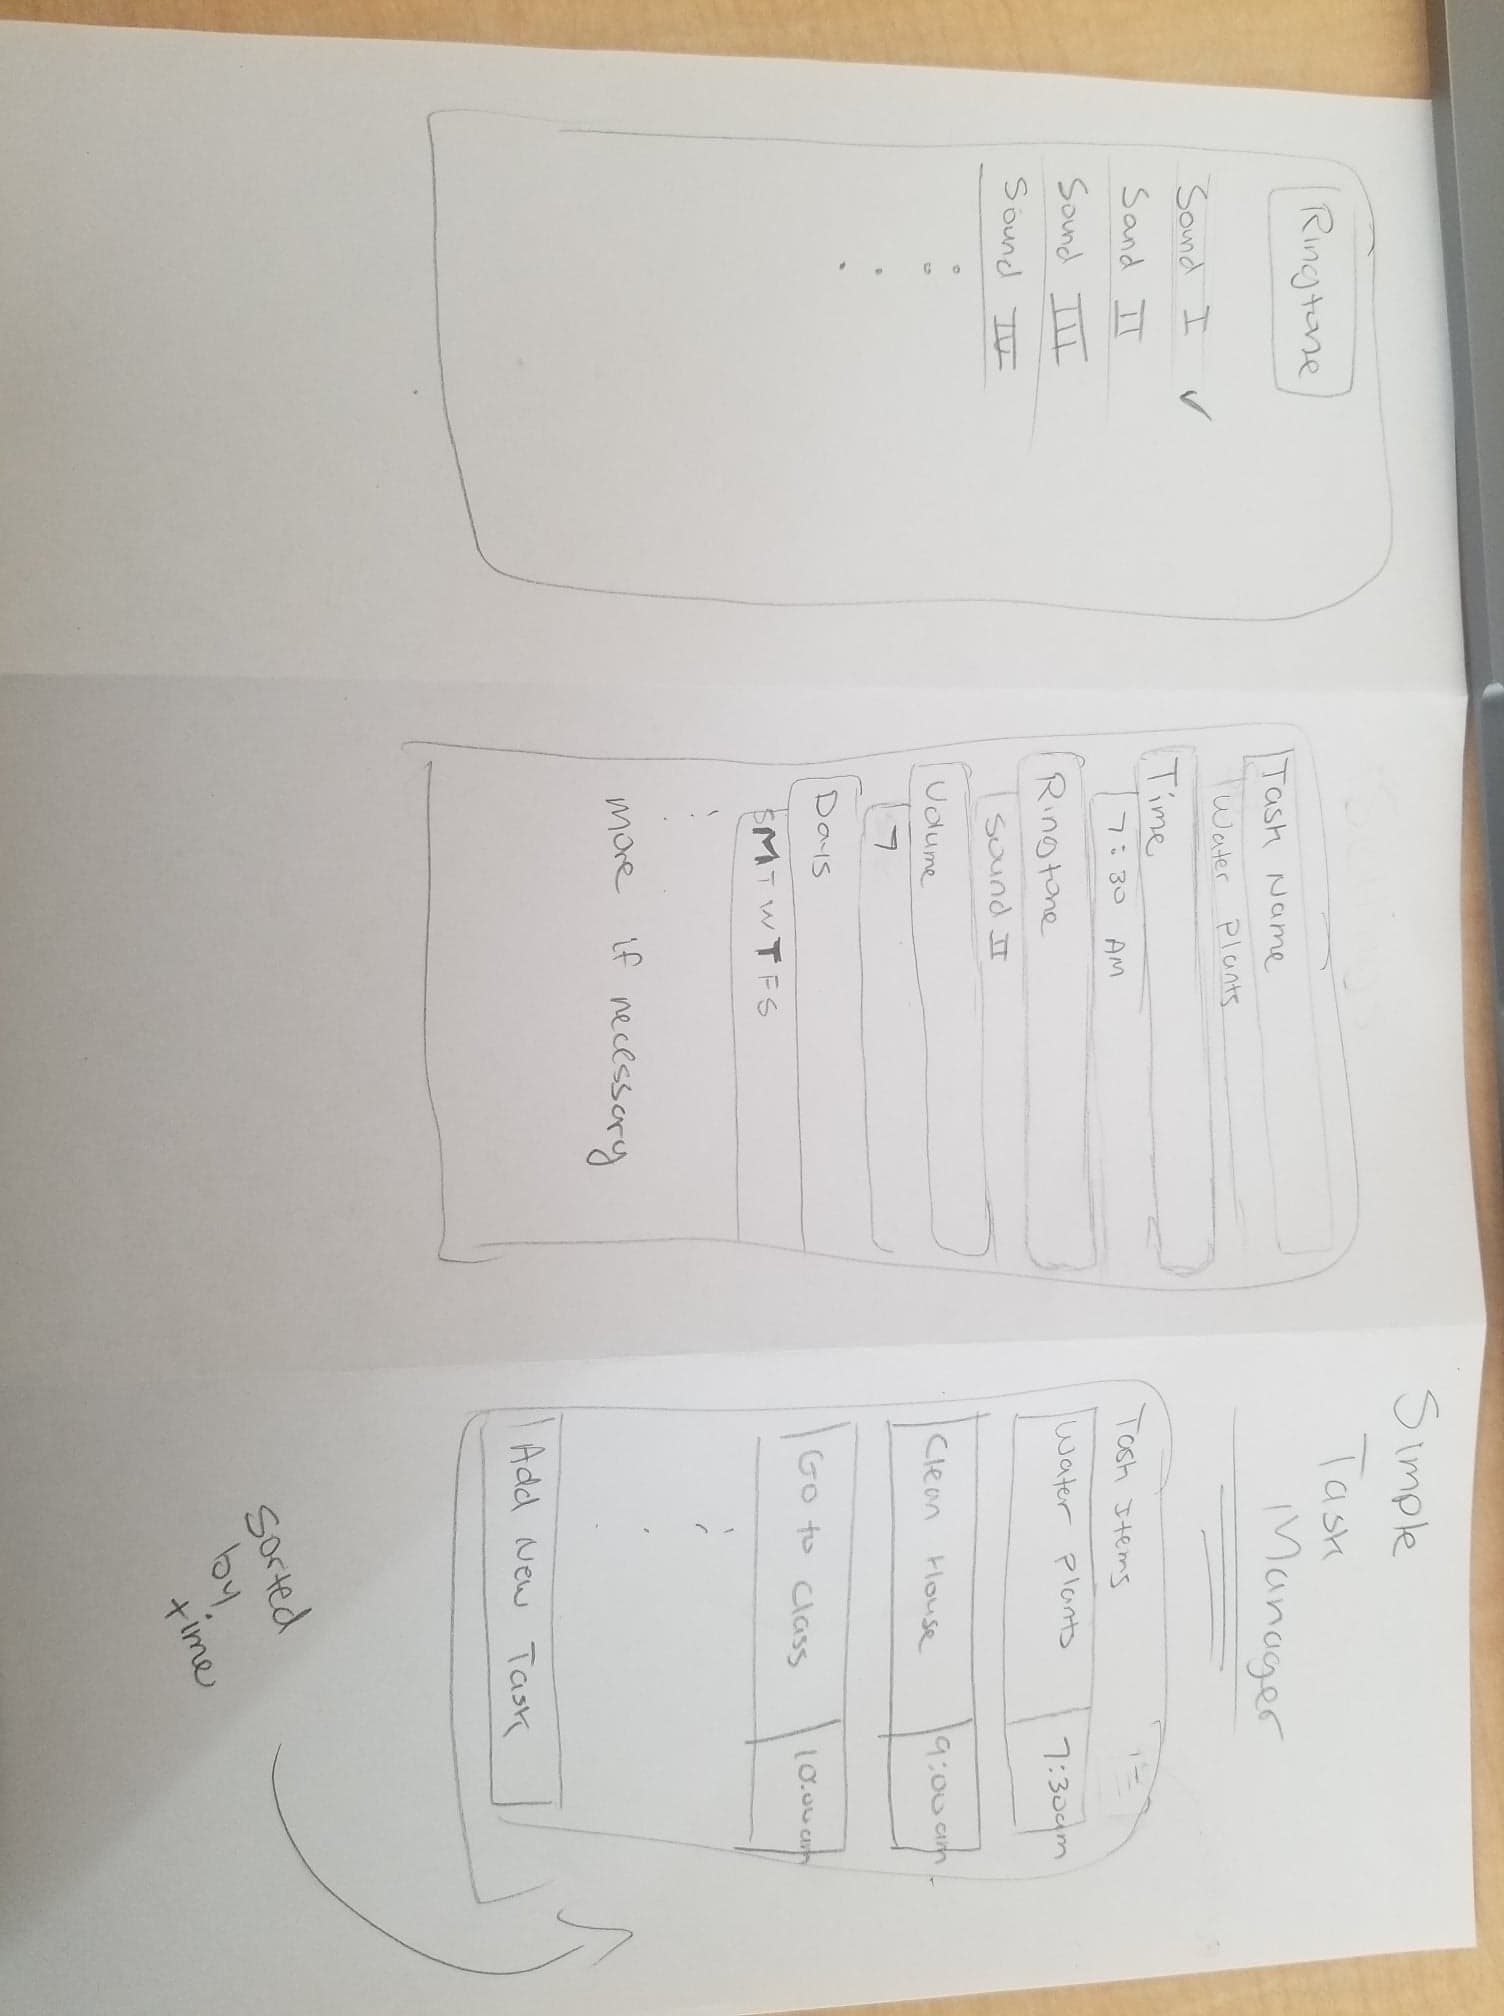 Ringtone
Sound I ✓
Sound II
Sound III
Sound IV
Task Name
Water Plants
Time
7:30 AM
Ringtone
Sound II
Volume
7
Days
S M T W T F S
more if necessary
Simple
Task
Manager
Task Items
Water Plants 7:30am
Clean House 9:00am
Go to Class 10:00am
Add New Task
Sorted
by
time